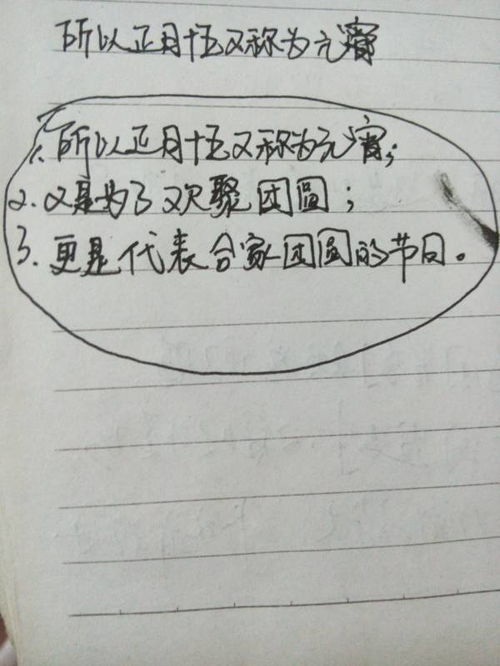 所以正月十五又称为元宵
1. 所以正月十五又称为元宵;
2. 又是为了欢聚团圆;
3. 更是代表合家团圆的节日。